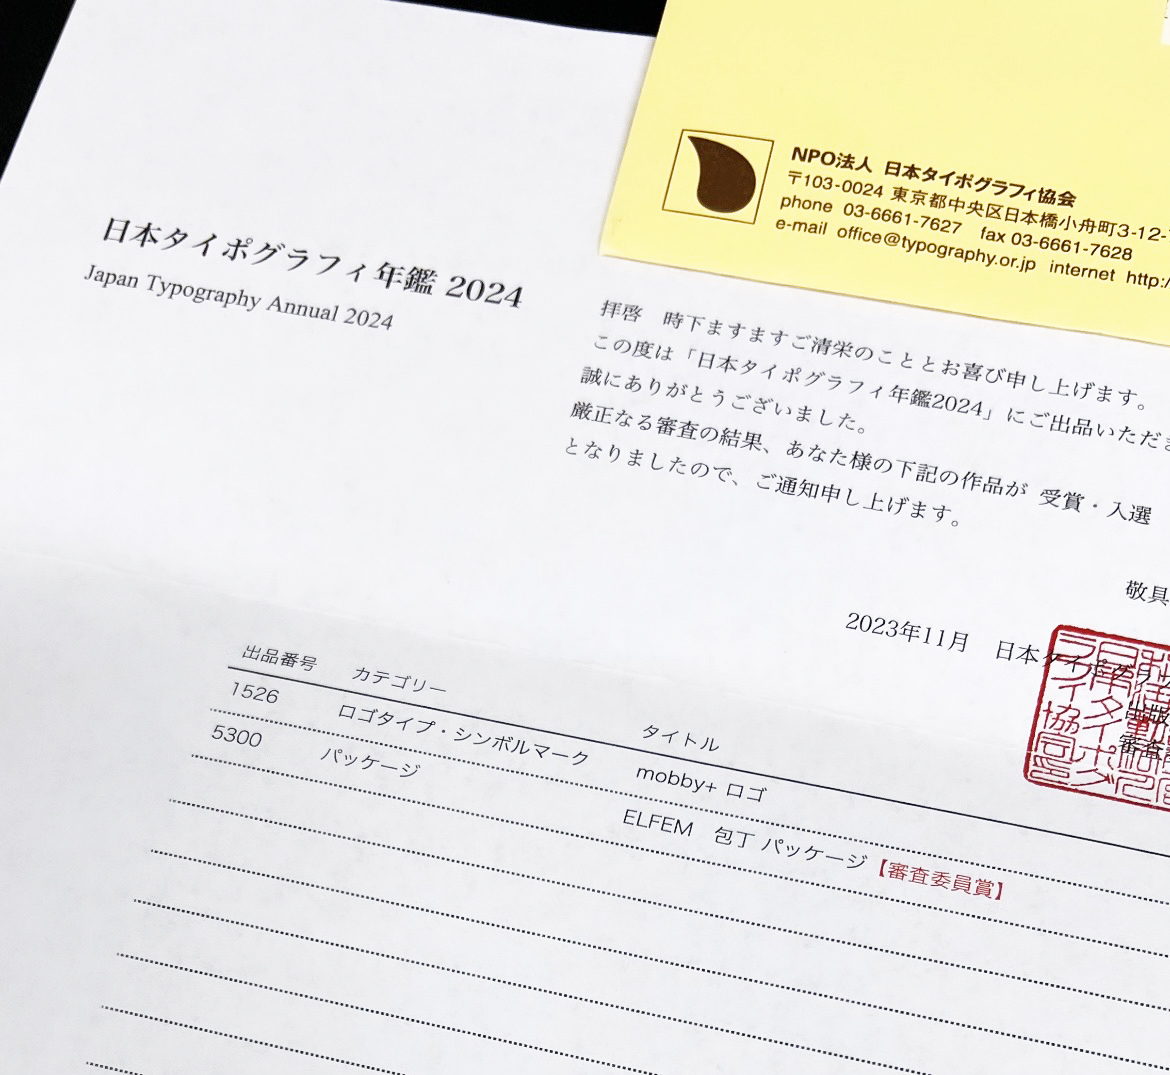 NPO法人 日本タイポグラフィ協会
〒103-0024 東京都中央区日本橋小舟町3-12-
phone 03-6661-7627 fax 03-6661-7628
e-mail office@typography.or.jp internet http:/
日本タイポグラフィ年鑑 2024
Japan Typography Annual 2024
拝啓 時下ますますご清栄のこととお喜び申し上げます。
この度は「日本タイポグラフィ年鑑2024」にご出品いただき
誠にありがとうございました。
厳正なる審査の結果、あなた様の下記の作品が 受賞・入選
となりましたので、ご通知申し上げます。
敬具
2023年11月 日本タイポグラフ
出版
審査
出品番号 カテゴリー タイトル
1526 ロゴタイプ・シンボルマーク mobby+ ロゴ
5300 パッケージ ELFEM 包丁 パッケージ【審査委員賞】